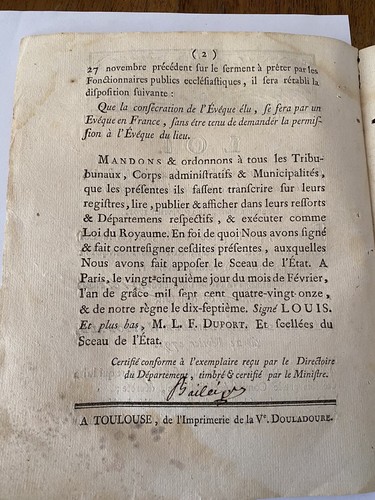 ( 2 )
27 novembre précédent sur le serment à prêter par les
Fonctionnaires publics ecclésiastiques, il sera rétabli la
disposition suivante :
Que la consécration de l'Evêque élu, se fera par un
Evêque en France, sans être tenu de demander la permis-
sion à l'Evêque du lieu.
MANDONS & ordonnons à tous les Tribu-
bunaux, Corps administratifs & Municipalités,
que les présentes ils fassent transcrire sur leurs
registres, lire, publier & afficher dans leurs ressorts
& Départemens respectifs, & exécuter comme
Loi du Royaume. En foi de quoi Nous avons signé
& fait contresigner cesdites présentes, auxquelles
Nous avons fait apposer le Sceau de l'État. A
Paris, le vingt-cinquième jour du mois de Février,
l'an de grâce mil sept cent quatre-vingt-onze,
& de notre règne le dix-septième. Signé LOUIS.
Et plus bas, M. L. F. DUPORT. Et scellées du
Sceau de l'État.
Certifié conforme à l'exemplaire reçu par le Directoire
du Département, timbré & certifié par le Ministre.
A TOULOUSE, de l'Imprimerie de la Vᵉ. DOULADOURE.